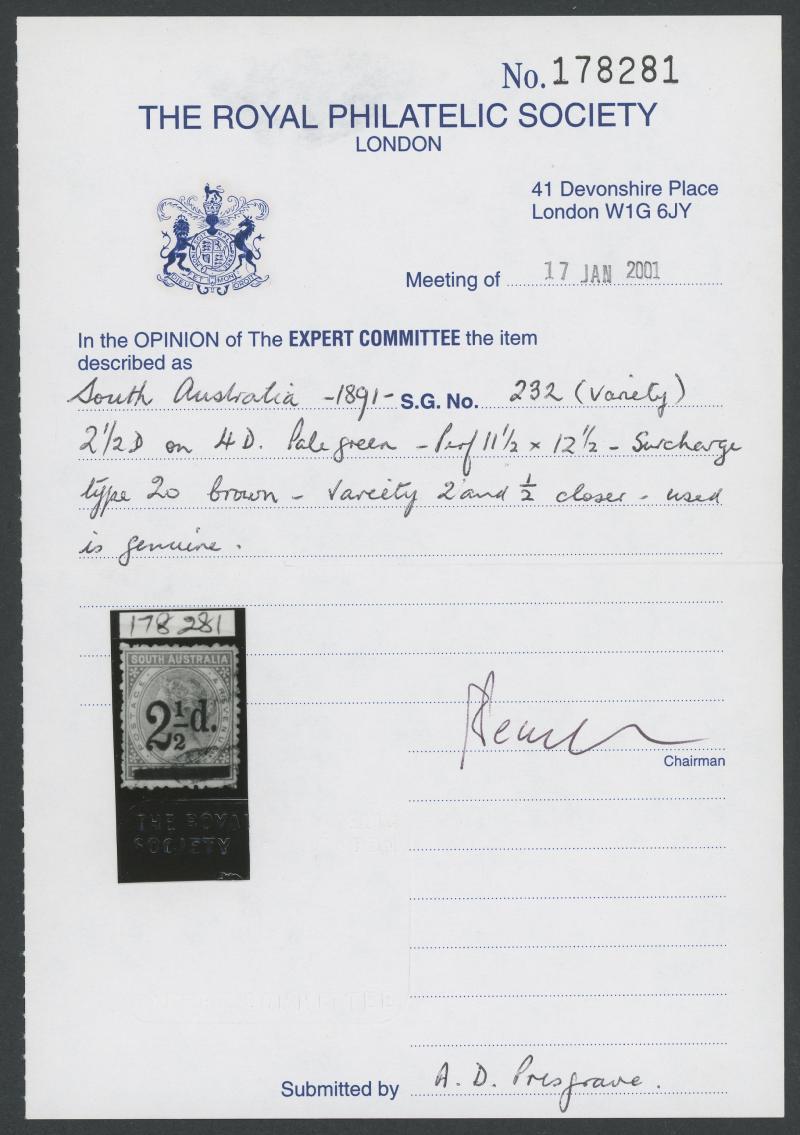 No. 178281
THE ROYAL PHILATELIC SOCIETY
LONDON
41 Devonshire Place
London W1G 6JY
Meeting of 17 JAN 2001
In the OPINION of The EXPERT COMMITTEE the item
described as
South Australia -1891- S.G. No. 232 (Variety)
2 1/2 D on 4 D. Pale green - Perf 11 1/2 x 12 1/2 - Surcharge
type 20 brown - Variety 2 and 1/2 closer - used
is genuine.
178 281
SOUTH AUSTRALIA
POSTAGE
2 1/2 d.
THE ROYAL
SOCIETY
Chairman
Submitted by A. D. Presgrave.